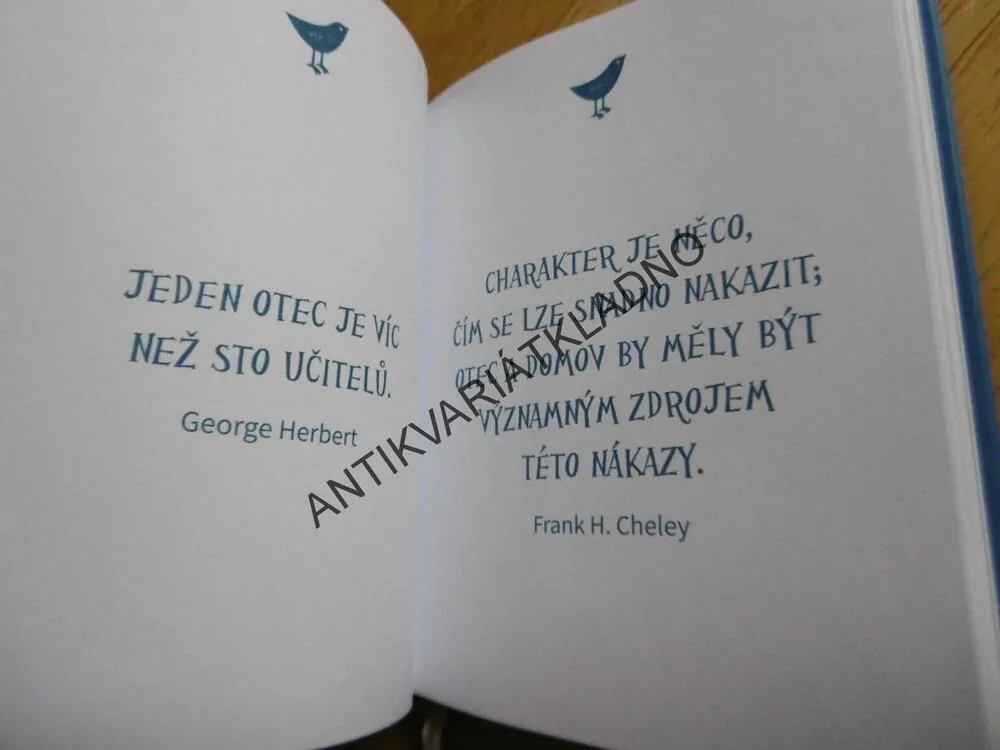 JEDEN OTEC JE VÍC
NEŽ STO UČITELŮ.
George Herbert
CHARAKTER JE NĚCO,
ČÍM SE LZE SNADNO NAKAZIT;
OTEC A DOMOV BY MĚLY BÝT
VÝZNAMNÝM ZDROJEM
TÉTO NÁKAZY.
Frank H. Cheley
ANTIKVARIÁTKLADNO